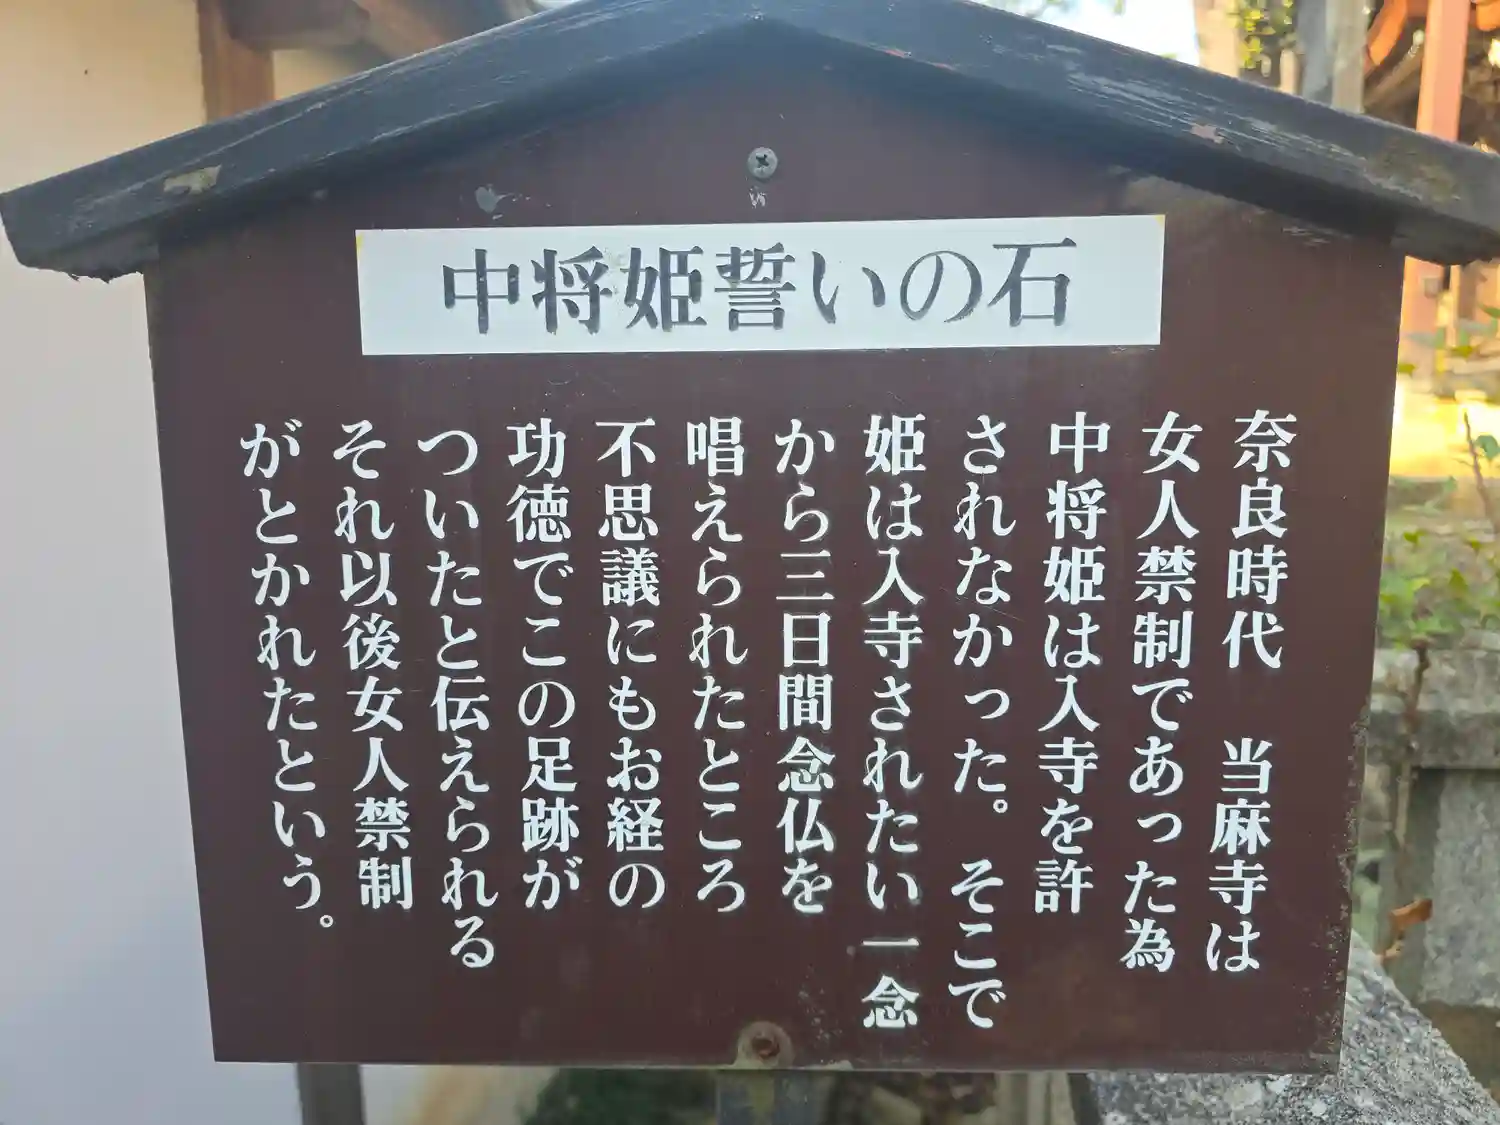 中将姫誓いの石
奈良時代　当麻寺は
女人禁制であった為
中将姫は入寺を許
されなかった。そこで
姫は入寺されたい一念
から三日間念仏を
唱えられたところ
不思議にもお経の
功徳でこの足跡が
ついたと伝えられる
それ以後女人禁制
がとかれたという。